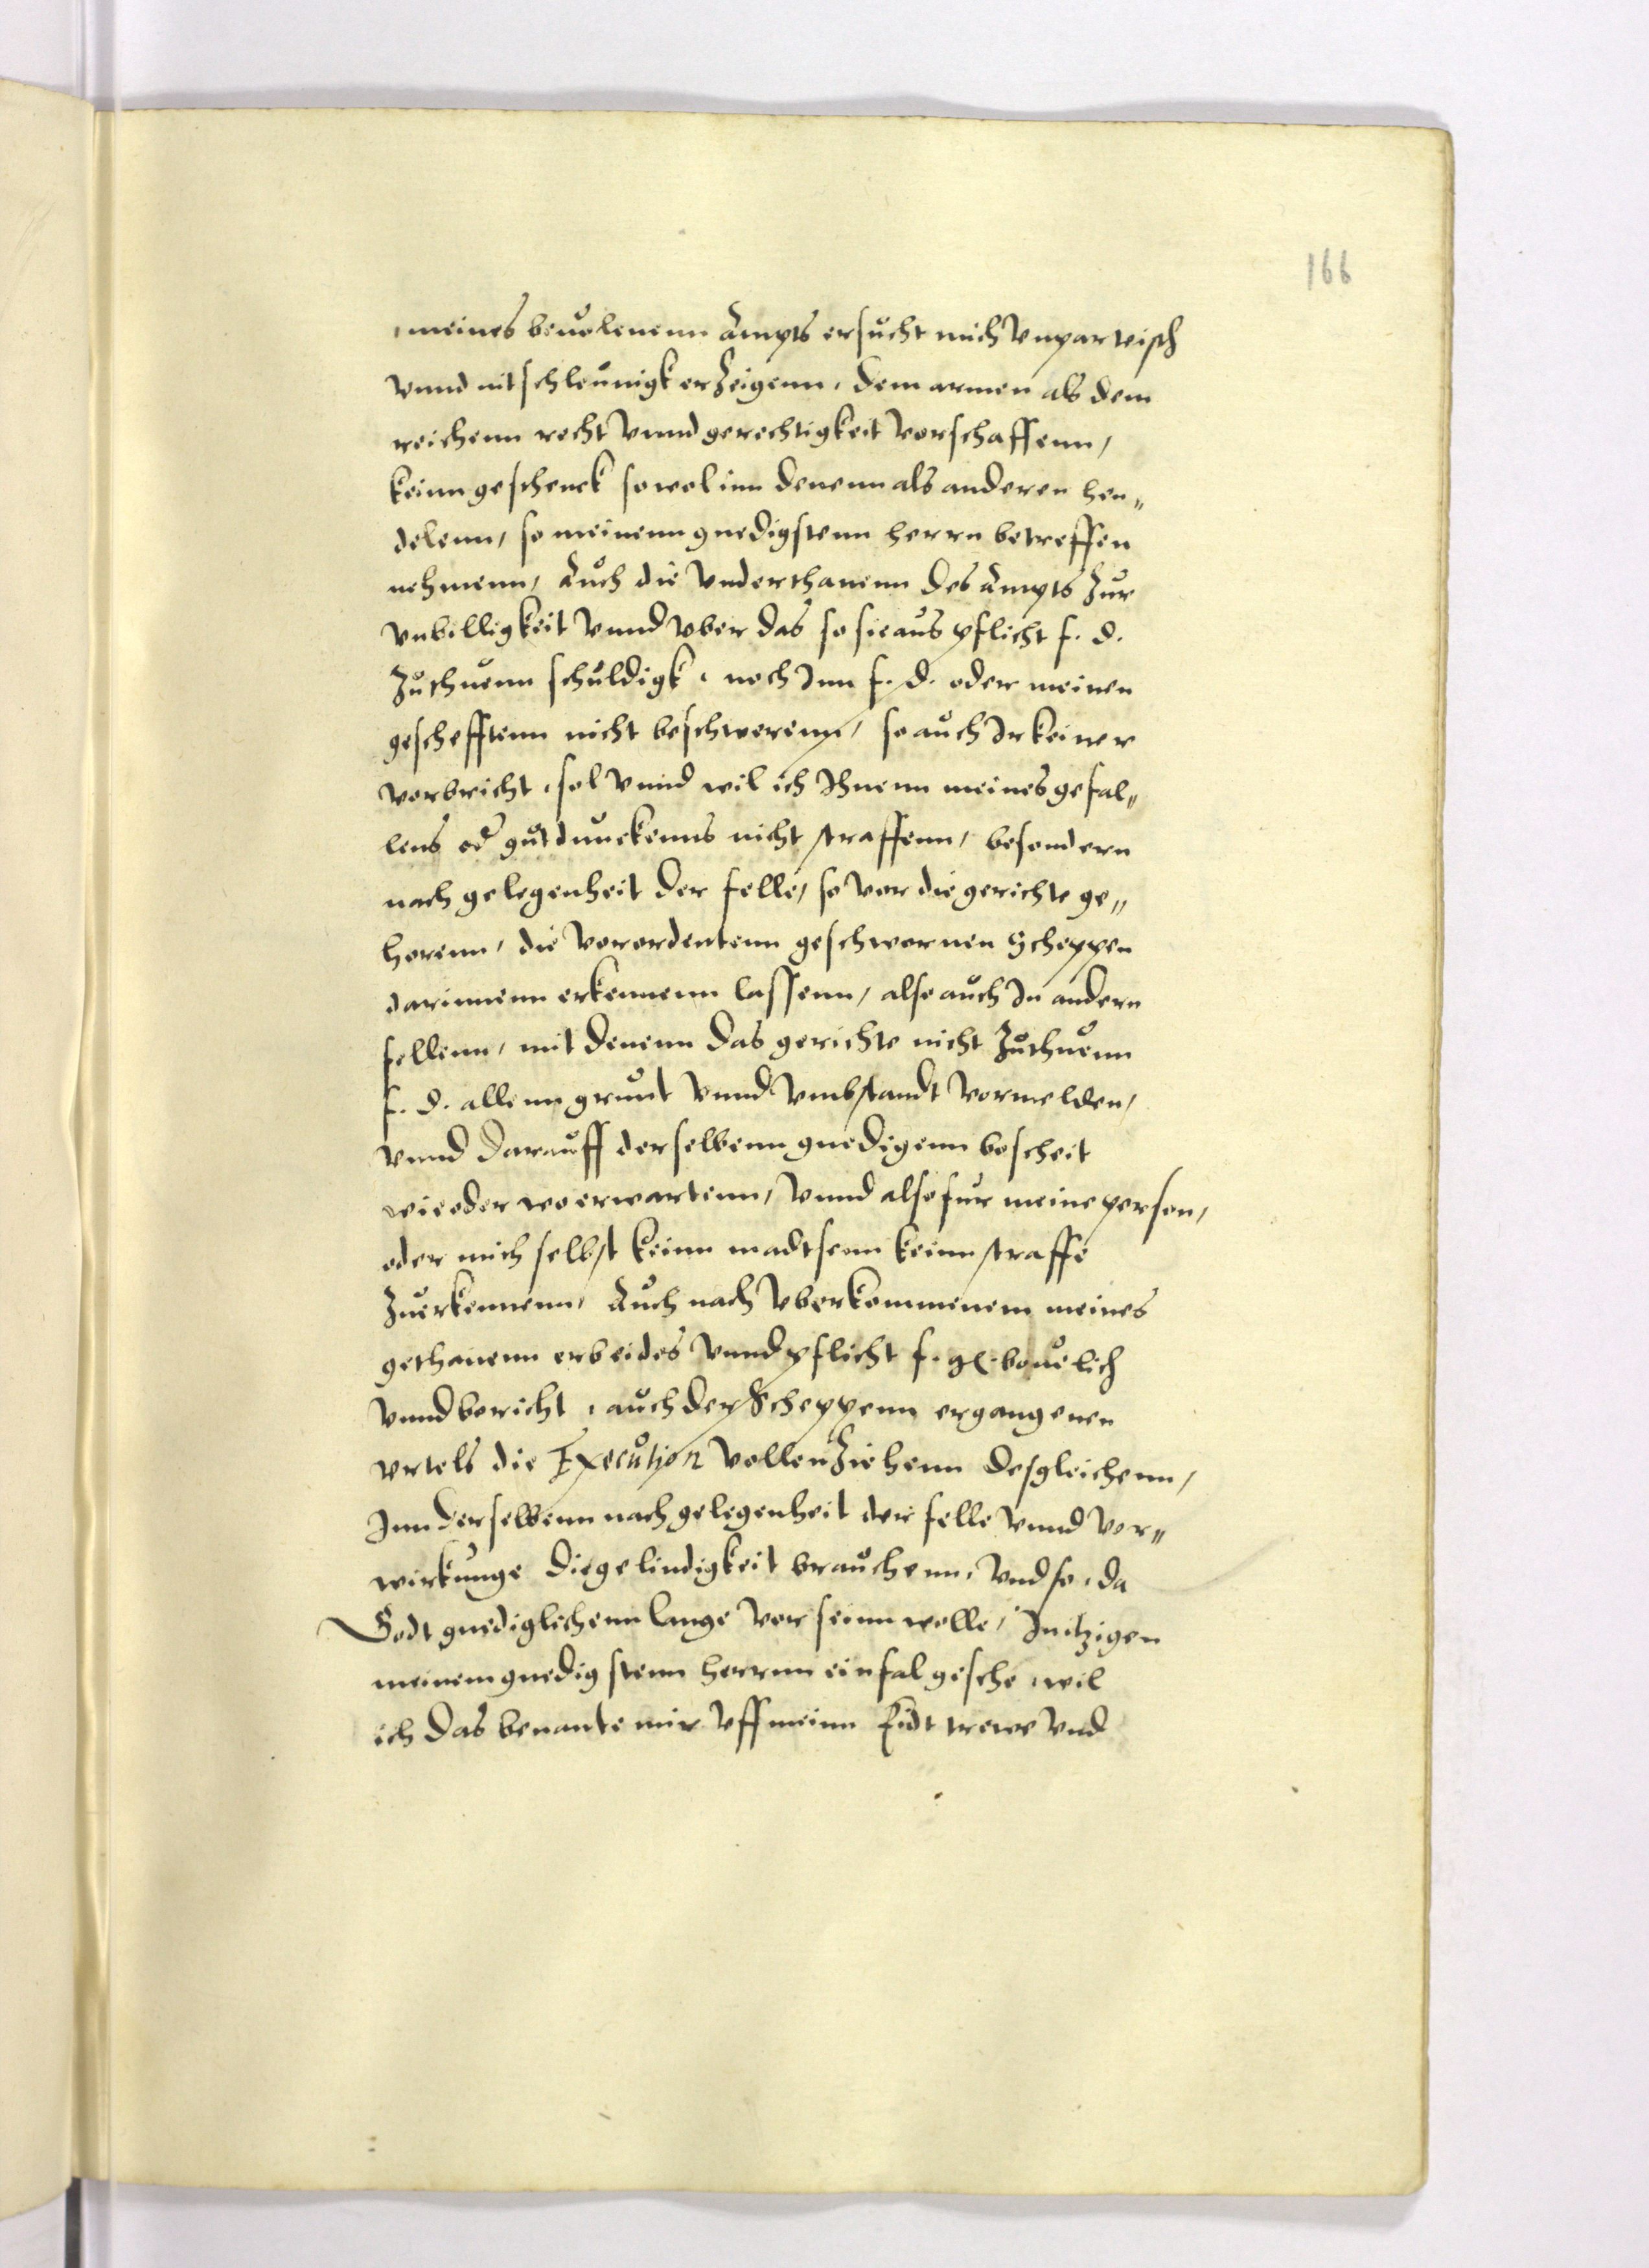 166
meines beuolenenn Ampts ersucht mich Vnparteisch
Vnnd mit schleunigk erzeigenn, dem armen als dem
reichenn recht Vnnd gerechtigkeit Vorschaffenn,
kein geschenck sowol inn denenn als anderen hen„
delenn, so meinenn gnedigstenn herrn betreffen
nehmenn, Auch die Vnderthanenn des Ampts zur
Vnbilligkeit Vnnd Vber das so sie aus pflicht f. d.
Zuthuenn schuldigk, noch Inn f. d. oder meinen
geschefftenn nicht beschwerenn, so auch Ir keiner
Vorbricht, sol Vnnd wil ich Ihnenn meines gefal„
lens od gutdunckenns nicht straffenn, besondern
nach gelegenheit der felle, so Vor die gerichte ge„
horenn, die Verordentenn geschwornen Scheppen
darinnenn erkennenn lassenn, also auch In andern
fellenn, mit denenn das gerichte nicht Zuthuenn
f. d. allenn grunt Vnnd Vmbstandt Vormelden,
Vnnd darauff derselbenn gnedigenn bescheit
wieoder wo erwartenn, Vnnd also fur meine person,
oder mich selbst keinn keinn straffe
Zuerkennenn, Auch nach Vberkommenem meines
gethanenn erbeides Vnnd pflicht f. g.
Vnnd bericht, auch der Scheppenn ergangenen
Vrtels die Execution VollenZiehenn desgleichenn,
Inn derselbenn nach gelegenheit der felle Vnnd Vor„
wirkunge die gelindigkeit brauchenn, Vnd so, da
Godt gnediglichenn lange Vor seinn wolle, In itzigen
meinem gnedigstenn herrnn ein fal gesche, wil
ich das benante mir Vff meinn Eidt trewe Vnd